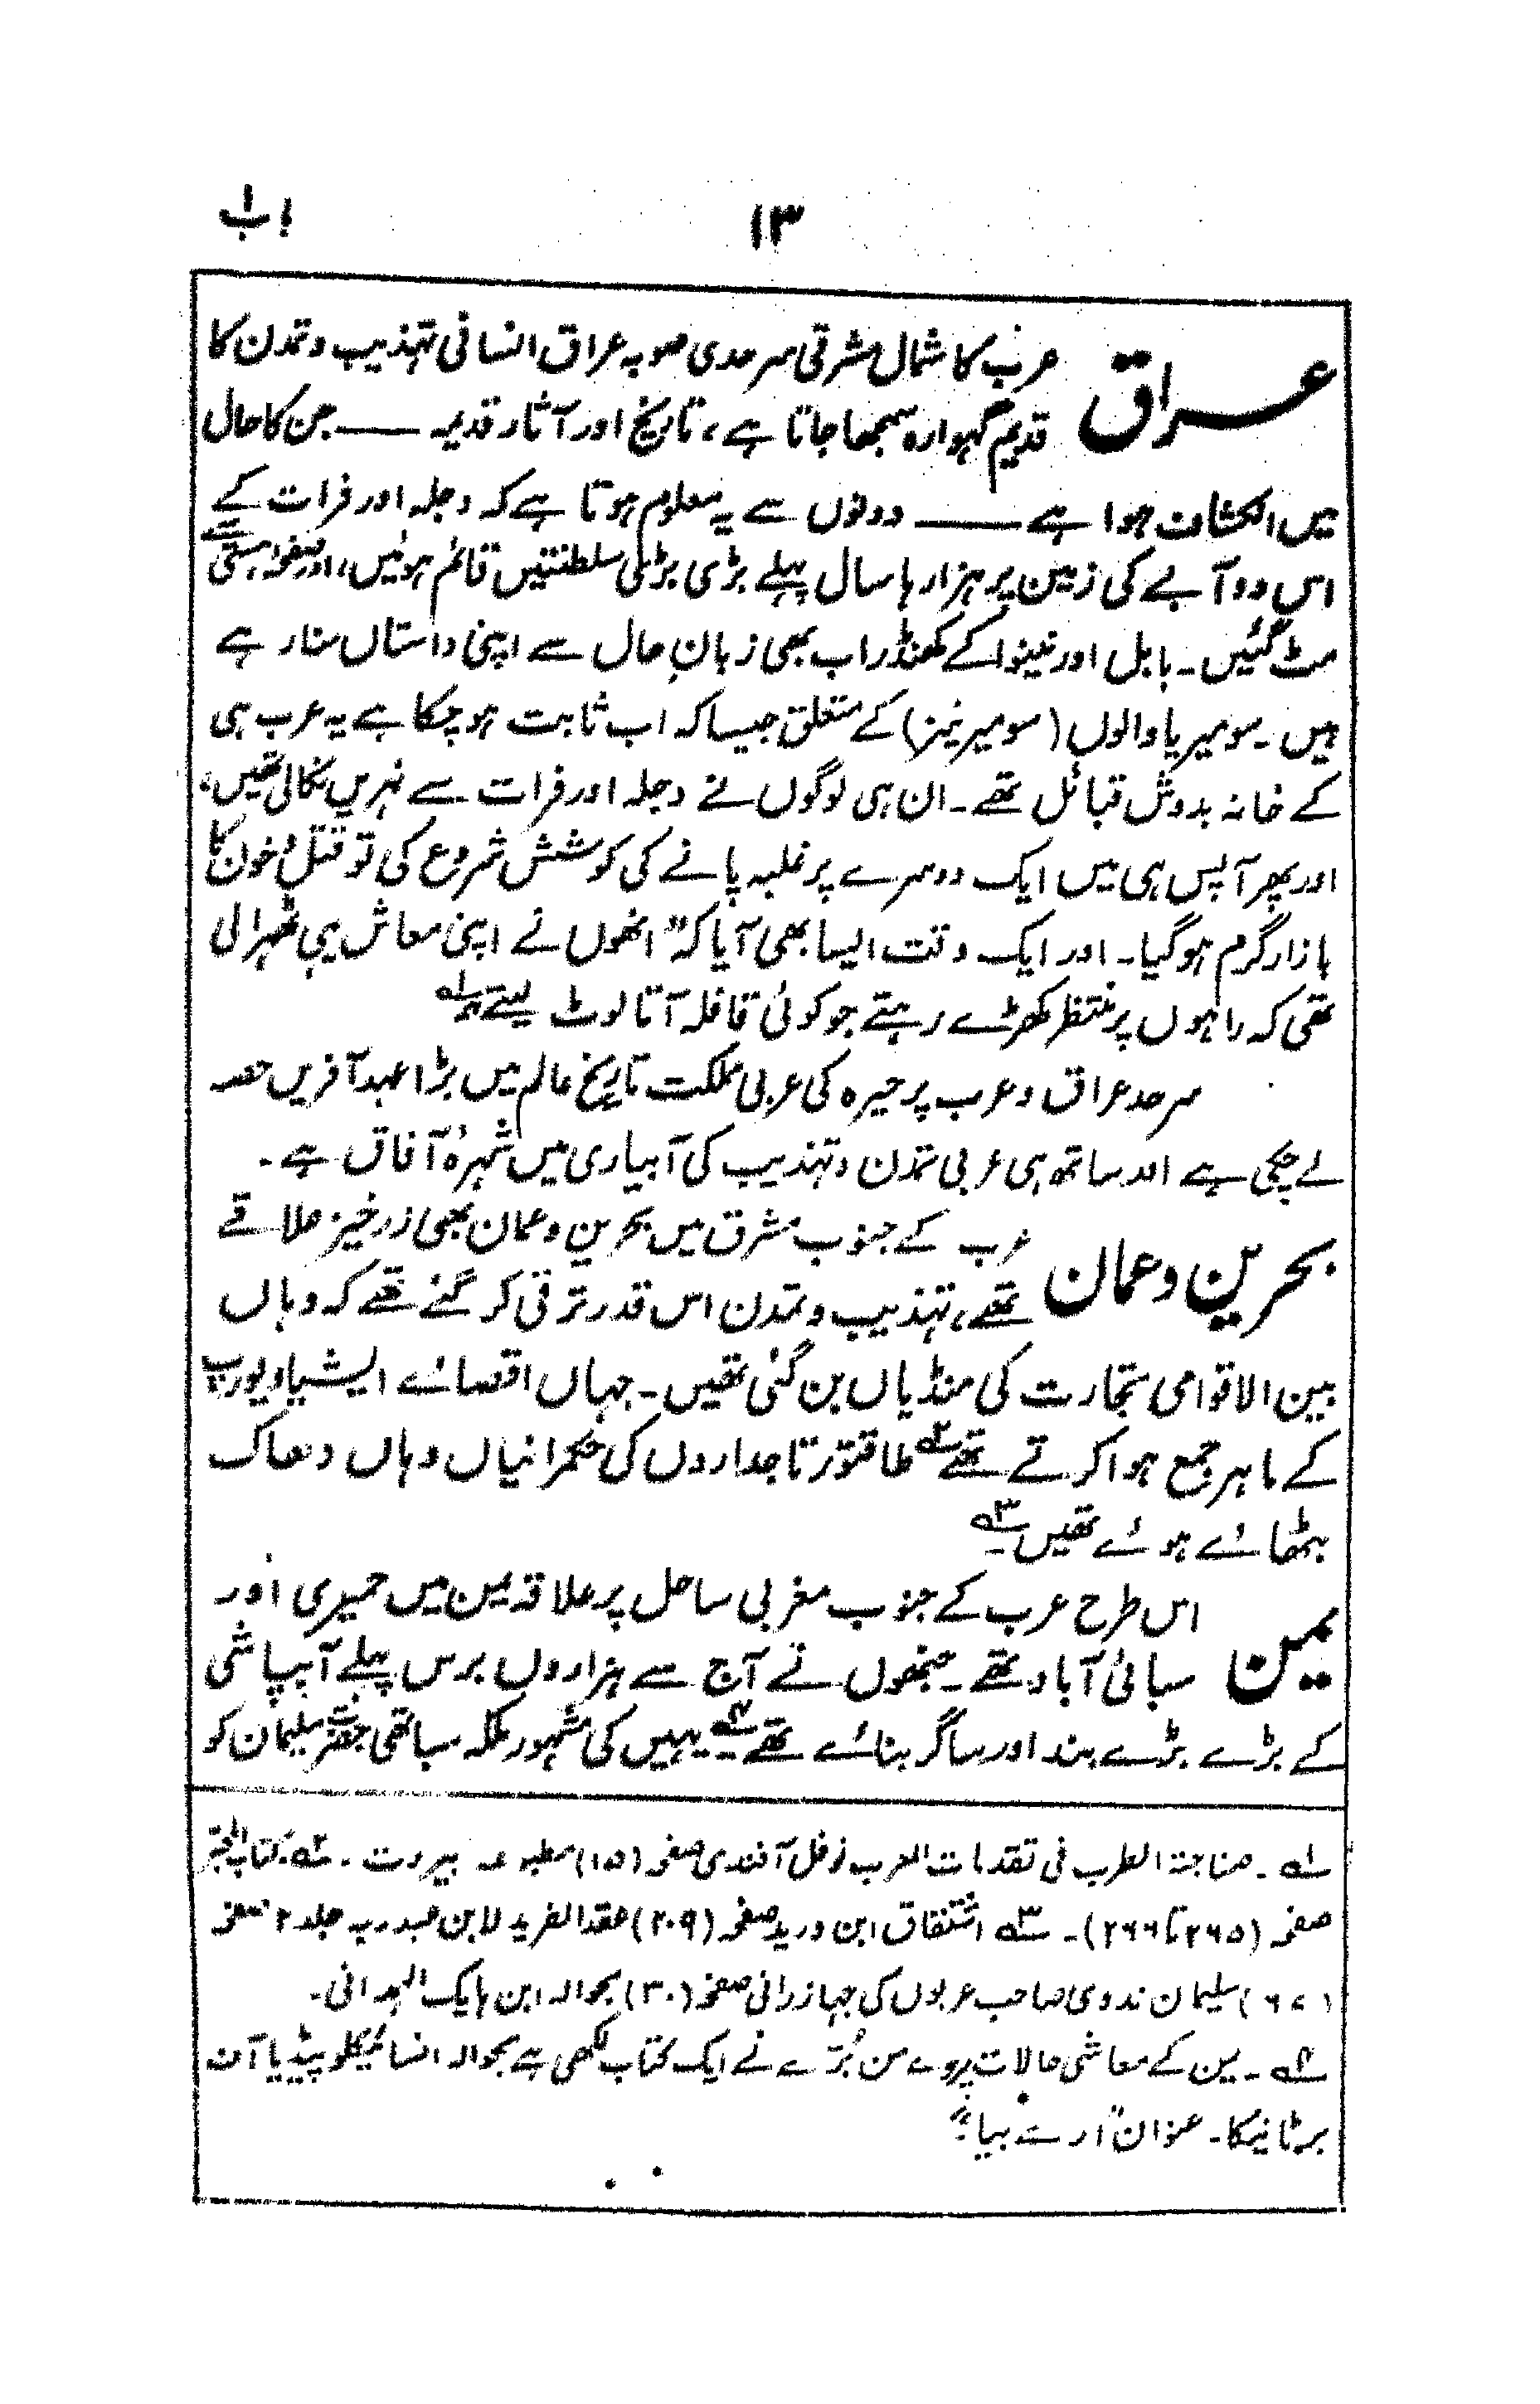 باب ۱
۱۳
عراق
عرب کا شمال مشرقی سرحدی صوبہ عراق انسانی تہذیب و تمدن کا
قدیم گہوارہ سمجھا جاتا ہے، تاریخ اور آثار قدیمہ —— جن کا حال
میں انکشاف ہوا ہے —— دونوں سے یہ معلوم ہوتا ہے کہ دجلہ اور فرات کے
اس دوآبے کی زمین پر ہزارہا سال پہلے بڑی بڑی سلطنتیں قائم ہوئیں، اور صفحۂ ہستی سے
مٹ گئیں۔ بابل اور نینوا کے کھنڈر اب بھی زبانِ حال سے اپنی داستاں سنا رہے
ہیں۔ سومیریا والوں (سومیرینز) کے متعلق جیسا کہ اب ثابت ہو چکا ہے یہ عرب ہی
کے خانہ بدوش قبائل تھے۔ ان ہی لوگوں نے دجلہ اور فرات سے نہریں نکالی تھیں،
اور پھر آپس ہی میں ایک دوسرے پر غلبہ پانے کی کوشش شروع کی تو قتل و خون کا
بازار گرم ہو گیا۔ اور ایک وقت ایسا بھی آیا کہ "انھوں نے اپنی معاش یہی ٹھہرا لی
تھی کہ راہوں پر منتظر کھڑے رہتے جو کوئی قافلہ آتا لوٹ لیتے" ؂۱
سرحد عراق و عرب پر حیرہ کی عربی مملکت تاریخ عالم میں بڑا عہد آفریں حصہ
لے چکی ہے اور ساتھ ہی عربی تمدن و تہذیب کی آبیاری میں شہرۂ آفاق ہے۔
بحرین و عمان
عرب کے جنوب مشرق میں بحرین و عمان بھی زرخیز علاقے
تھے، تہذیب و تمدن اس قدر ترقی کر گئے تھے کہ وہاں
بین الاقوامی تجارت کی منڈیاں بن گئی تھیں۔ جہاں اقصائے ایشیا و یورپ
کے ماہر جمع ہوا کرتے تھے ؂۲ طاقتور تاجداروں کی حکمرانیاں وہاں دھاک
بٹھائے ہوئے تھیں ؂۳۔
یمن
اس طرح عرب کے جنوب مغربی ساحل پر علاقہ یمن میں حمیری اور
سبائی آباد تھے۔ جنھوں نے آج سے ہزاروں برس پہلے آبپاشی
کے بڑے بڑے بند اور ساگر بنائے تھے ؂۴۔ یہیں کی مشہور ملکہ سبا تھی حضرت سلیمان کو
؂۱۔ صناجۃ الطرب فی تقدمات العرب نوفل آفندی صفحہ (۱۵) مطبوعہ بیروت۔ ؂۲۔ کتاب المحبر
صفحہ (۲۶۵ تا ۲۶۶)۔ ؂۳ اشتقاق ابن درید صفحہ (۲۰۹) عقد الفرید لابن عبد ربہ جلد ۲ صفحہ
(۶۷۱) سلیمان ندوی صاحب عربوں کی جہاز رانی صفحہ (۳۰) بحوالہ ابن ہایک الہمدانی۔
؂۴۔ یمن کے معاشی حالات پر وے من بُرّے نے ایک کتاب لکھی ہے بحوالہ انسائیکلو پیڈیا آن
برٹانیکا۔ عنوان "ارے بیا"؛